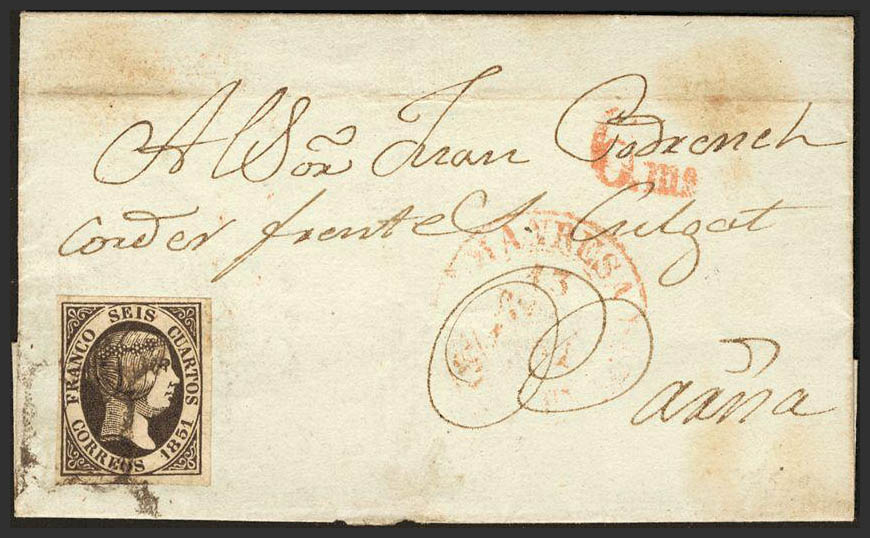 Al Sor Juan Codrench
corder frente S. Culgat
Barña
MANRESA
13
FRANCO SEIS CUARTOS
CORREOS 1851